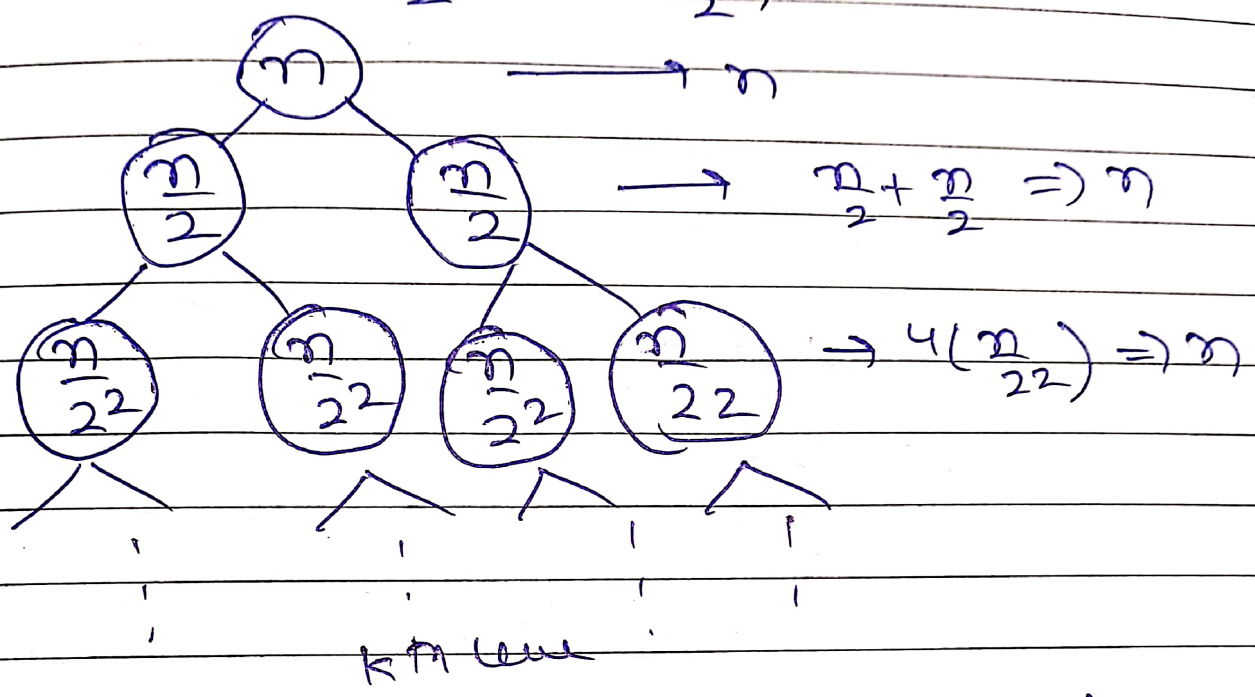 n → n
n/2 n/2 → n/2 + n/2 => n
n/2² n/2² n/2² n/22 → 4(n/22) => n
kth level